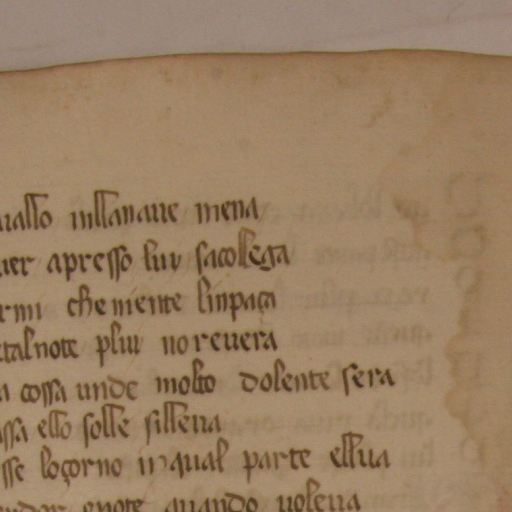 uallo inllanaue mena
uer apresso luy sacollega
rmi che niente linpaça
talnote pluy no revera
a cossa unde molto dolente sera
assa ello solle silleua
sse loçorno inqual parte elleua
enote quando uoleua